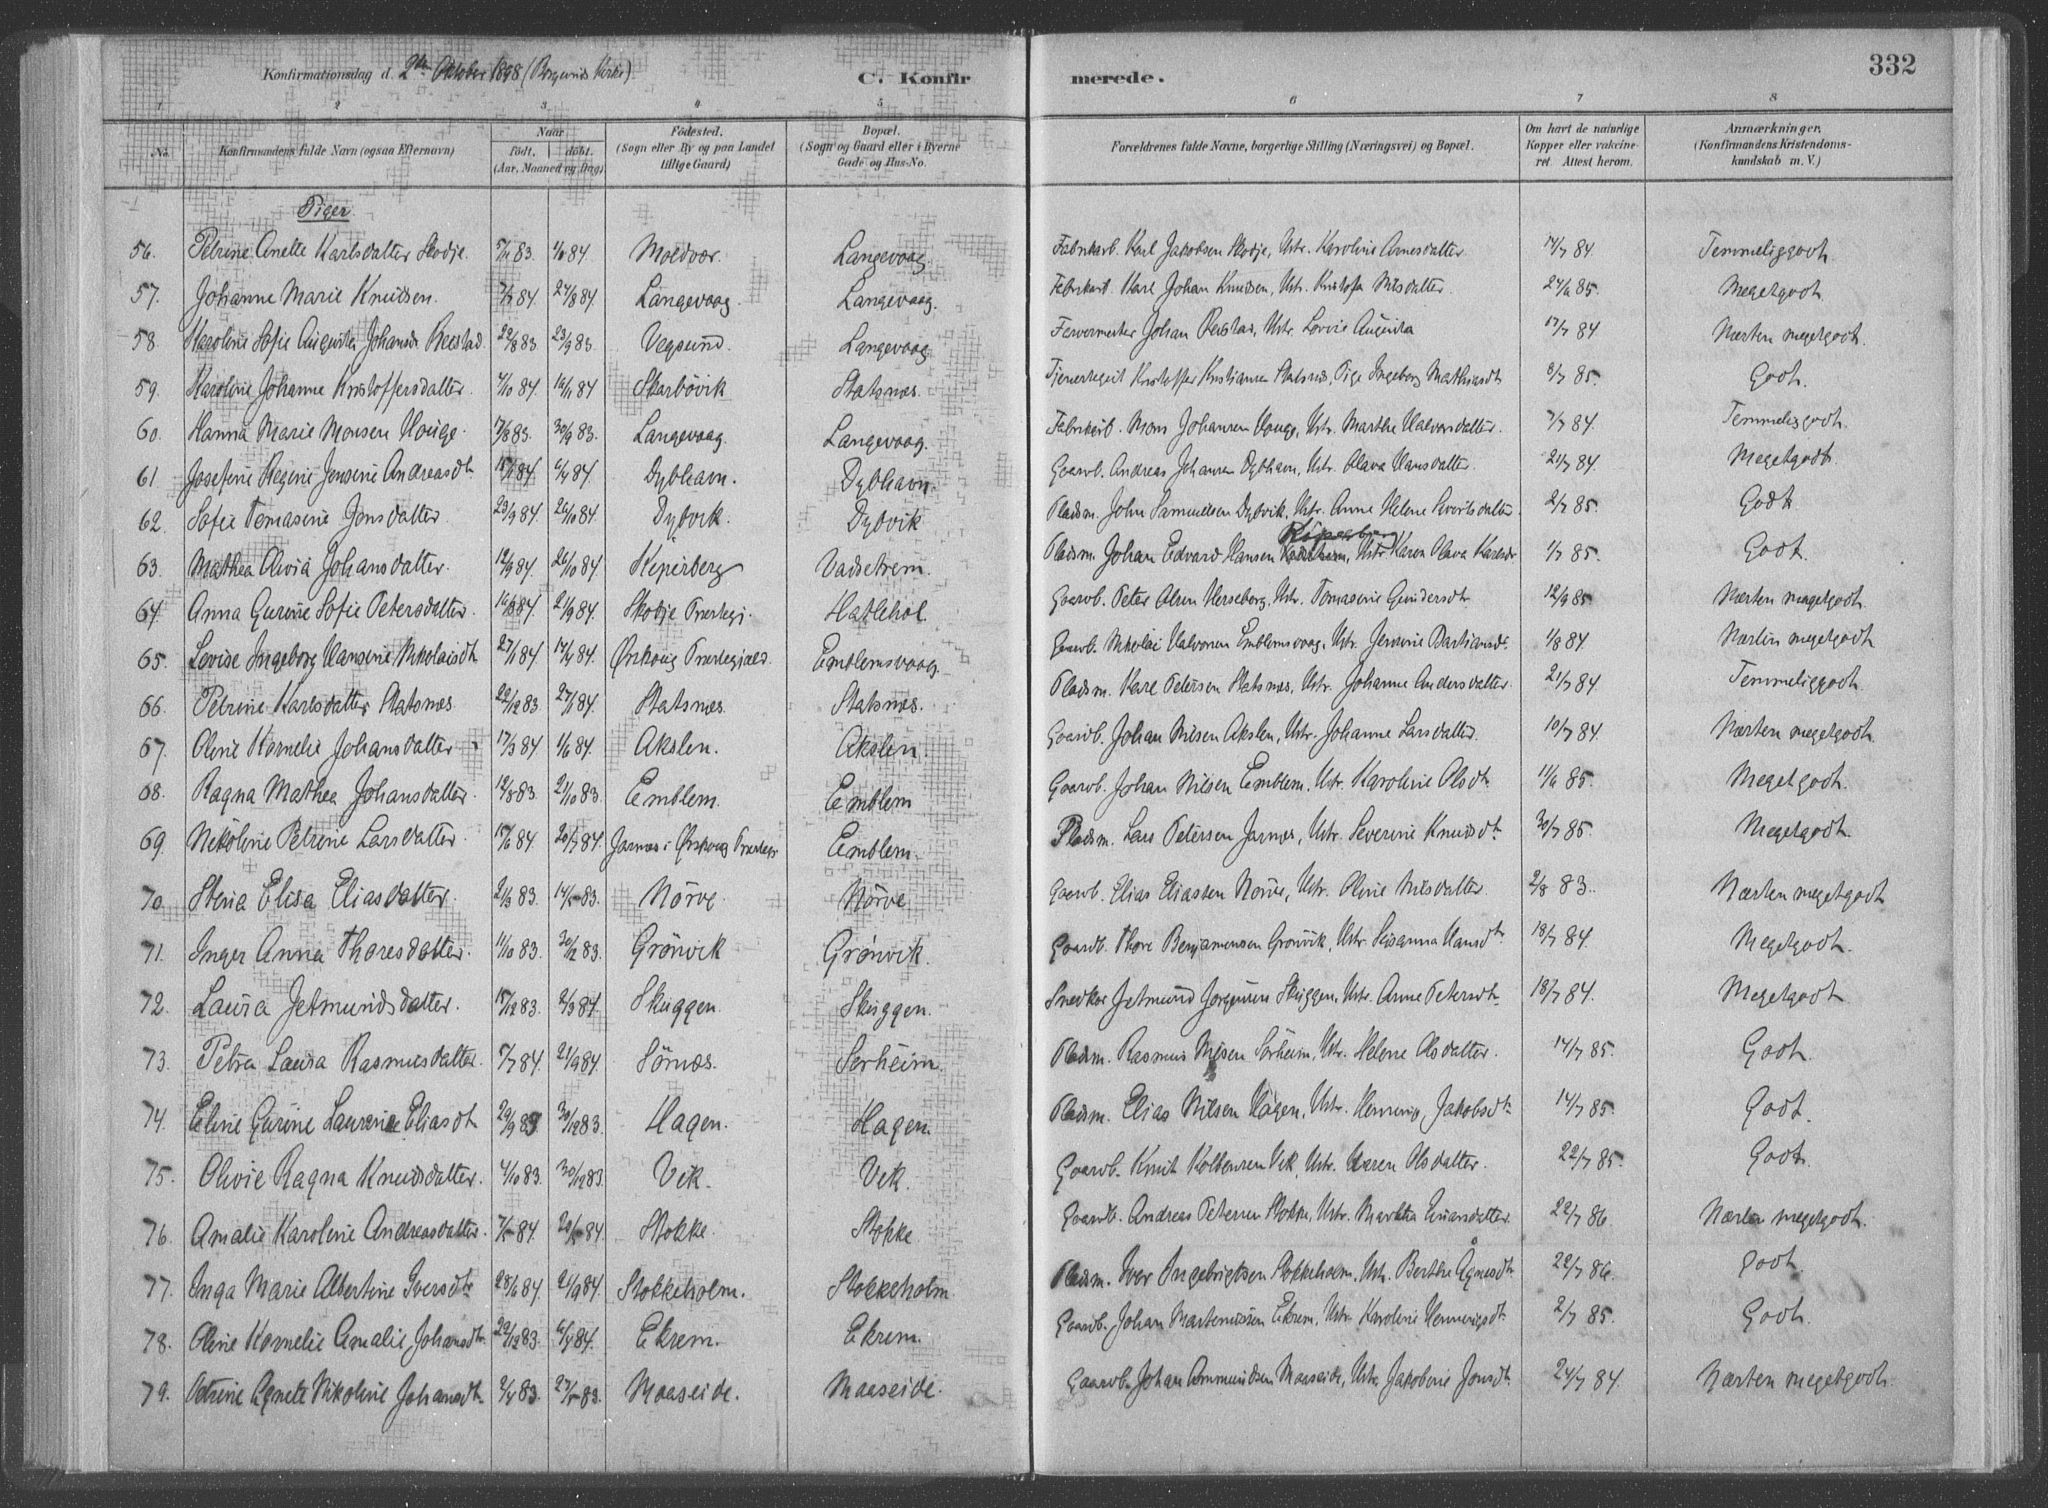 332
Konfirmationsdag d. 2den Oktober 1898 (Borgunds Kirke) C. Konfirmerede.
1 2 3 4 5 6 7 8
No. Konfirmandens fulde Navn (ogsaa Efternavn) Naar födt. döbt. (Aar, Maaned og Dag) Födested. (Sogn eller By og paa Landet tillige Gaard) Bopæl. (Sogn og Gaard eller i Byerne Gade og Hus-No. Forældrenes fulde Navne, borgerlige Stilling (Næringsvei) og Bopæl. Om havt de naturlige Kopper eller vakcineret. Attest herom. Anmærkninger. (Konfirmandens Kristendomskundskab m. V.)
Piger
56. Petrine Anette Karlsdatter Skodje 83 84 Moldvær. Langevaag. Fabrikarb. Karl Jakobsen Skodje, Ustr. Karoline Arnesdatter 14/7 84. Temmeliggodt.
57. Johanne Marie Knudsen. 84 27/8 84 Langevaag. Langevaag. Fabrikarb. Karl Johan Knudsen, Ustr. Kristofa Nilsdatter. 24/6 85. Megetgodt.
58. Karoline Sofie Augusta Johansdr Reestad 29/8 83 23/9 83 Vegsund. Langevaag. Farvermester Johan Reestad, Ustr. Lovise Augusta 17/7 84 Næsten megetgodt.
59. Karoline Johanne Kristoffersdatter. 4/10 84 16/11 84 Skarbövik Statsnes. Kristoffer Kristiansen Statsnes, Pige Ingeborg Mathiasdt 8/7 85. Godt.
60. Hanna Marie Monsen Houge. 17/8 83. 30/9 83. Langevaag. Langevaag. Fabrikarb. Mons Johansen Houge, Ustr. Marthe Halvorsdatter. 7/7 84. Temmeliggodt.
61. Josefine Regine Jensine Andreasdt. 15/1 84 6/4 84 Dybhavn. Dybhavn. Gaardb. Andreas Johansen Dybhavn, Ustr. Olava Hansdatter. 21/7 84. Megetgodt.
62. Sofie Tomasine Jonsdatter 23/9 84 26/10 84 Dybvik. Dybvik Pladsm. John Samuelsen Dybvik, Ustr. Anne Helene Sivertsdatter. 2/7 85. Godt
63. Mathea Olivia Johansdatter. 12/9 84 26/10 84 Keiperberg Vadsetrem. Pladsm. Johan Edvard Hansen, Ustr. Karen Olava Karlsdr 1/7 85. Godt.
64. Anna Gurine Sofie Petersdatter. 16/8 84. 21/9 84. Skodje Prestegj. Hatlehol. Gaardb. Peter Olsen Herseberg, Ustr. Tomasine Gundersdt 12/9 85. Næsten megetgodt.
65. Lovise Ingeborg Hansine Nikolaisdt 27/1 84 14/4 84. Ørskoug Prestegjæld. Emblemsvaag. Gaardb. Nikolai Halvorsen Emblemsvaag, Ustr. Jensine Bastiansdt. 1/8 84 Næsten megetgodt.
66. Petrine Karlsdatter Statsnes 22/12 83 27/1 84. Statsnes. Statsnes. Pladsm. Karl Petersen Statsnes, Ustr. Johanne Andersdatter. 21/7 84. Temmeliggodt.
67. Oline Kornelie Johansdatter 17/3 84 1/6 84. Akslen. Akslen. Gaardb. Johan Nilsen Akslen, Ustr. Johanne Larsdatter. 10/7 84. Næsten megetgodt.
68. Ragna Mathea Johansdatter. 12/8 83. 21/10 83. Emblem. Emblem Gaardb. Johan Nilsen Emblem, Ustr. Karoline Olsdt. 11/6 85. Megetgodt.
69. Nikoline Petrine Larsdatter. 15/6 84. 20/7 84. Jarnes i Ørskoug Prestegj. Emblem. Pladsm. Lars Petersen Jarnes, Ustr. Severine Knudsdt. 30/7 85. Megetgodt.
70. Stena Elisa Eliasdatter. 21/3 83. 14/5 83. Nörve. Nörve Gaardb. Elias Eliassen Nörve, Ustr. Oline Nilsdatter. 2/8 83. Næsten megetgodt
71. Inger Anna Thoresdatter. 11/10 83. 30/12 83. Grönvik Grönvik. Gaardb. Thore Benjaminsen Grönvik, Ustr. Susanna Hansdt. 18/7 84. Megetgodt.
72. Laura Jetmundsdatter. 15/12 83. 2/3 84. Skuggen. Skuggen. Snedker Jetmund Jorgensen Skuggen, Ustr. Anne Petersdt. 18/7 84. Megetgodt.
73. Petra Laura Rasmusdatter. 7/7 84. 21/9 84. Sörnes. Sorheim. Pladsm. Rasmus Nilsen Sörheim, Ustr. Helene Olsdatter. 14/7 85. Godt.
74. Eline Gurine Laurine Eliasdt. 29/9 83 30/12 83. Hagen. Hagen. Pladsm. Elias Nilsen Hagen, Ustr. Jakobsdt. 14/7 85. Godt.
75. Olivie Ragna Knudsdatter. 4/10 83. 30/12 83. Vik. Vik. Gaardb. Knut Kolbensen Vik, Ustr. Karen Olsdatter. 22/7 85. Godt.
76. Amalie Karoline Andreasdatter. 7/5 84. 20/5 84. Stokke. Stokke Gaardb. Andreas Petersen Stokke, Ustr. Martha 22/7 86. Næsten megetgodt.
77. Inga Marie Albertine Iversdt. 28/6 84 21/9 84. Stokkeholm. Stokkeholm. Pladsm. Iver Ingebrigtsen Stokkeholm, Ustr. Berthe Ågnesdt. 22/7 86. Godt.
78. Oline Kornelie Amalie Johansdt. 29/12 83. 6/4 84. Ekrem. Ekrem. Gaardb. Johan Martinussen Ekrem, Ustr. Karoline Henningsdt. 2/7 85. Godt.
79. Petrine Agnete Nikoline Johansdt. 2/4 83. 27/5 83. Maaseide. Maaseide. Gaardb. Johan Ammundsen Maaseide, Ustr. Jakobine Jonsdt. 24/7 84. Næsten megetgodt.